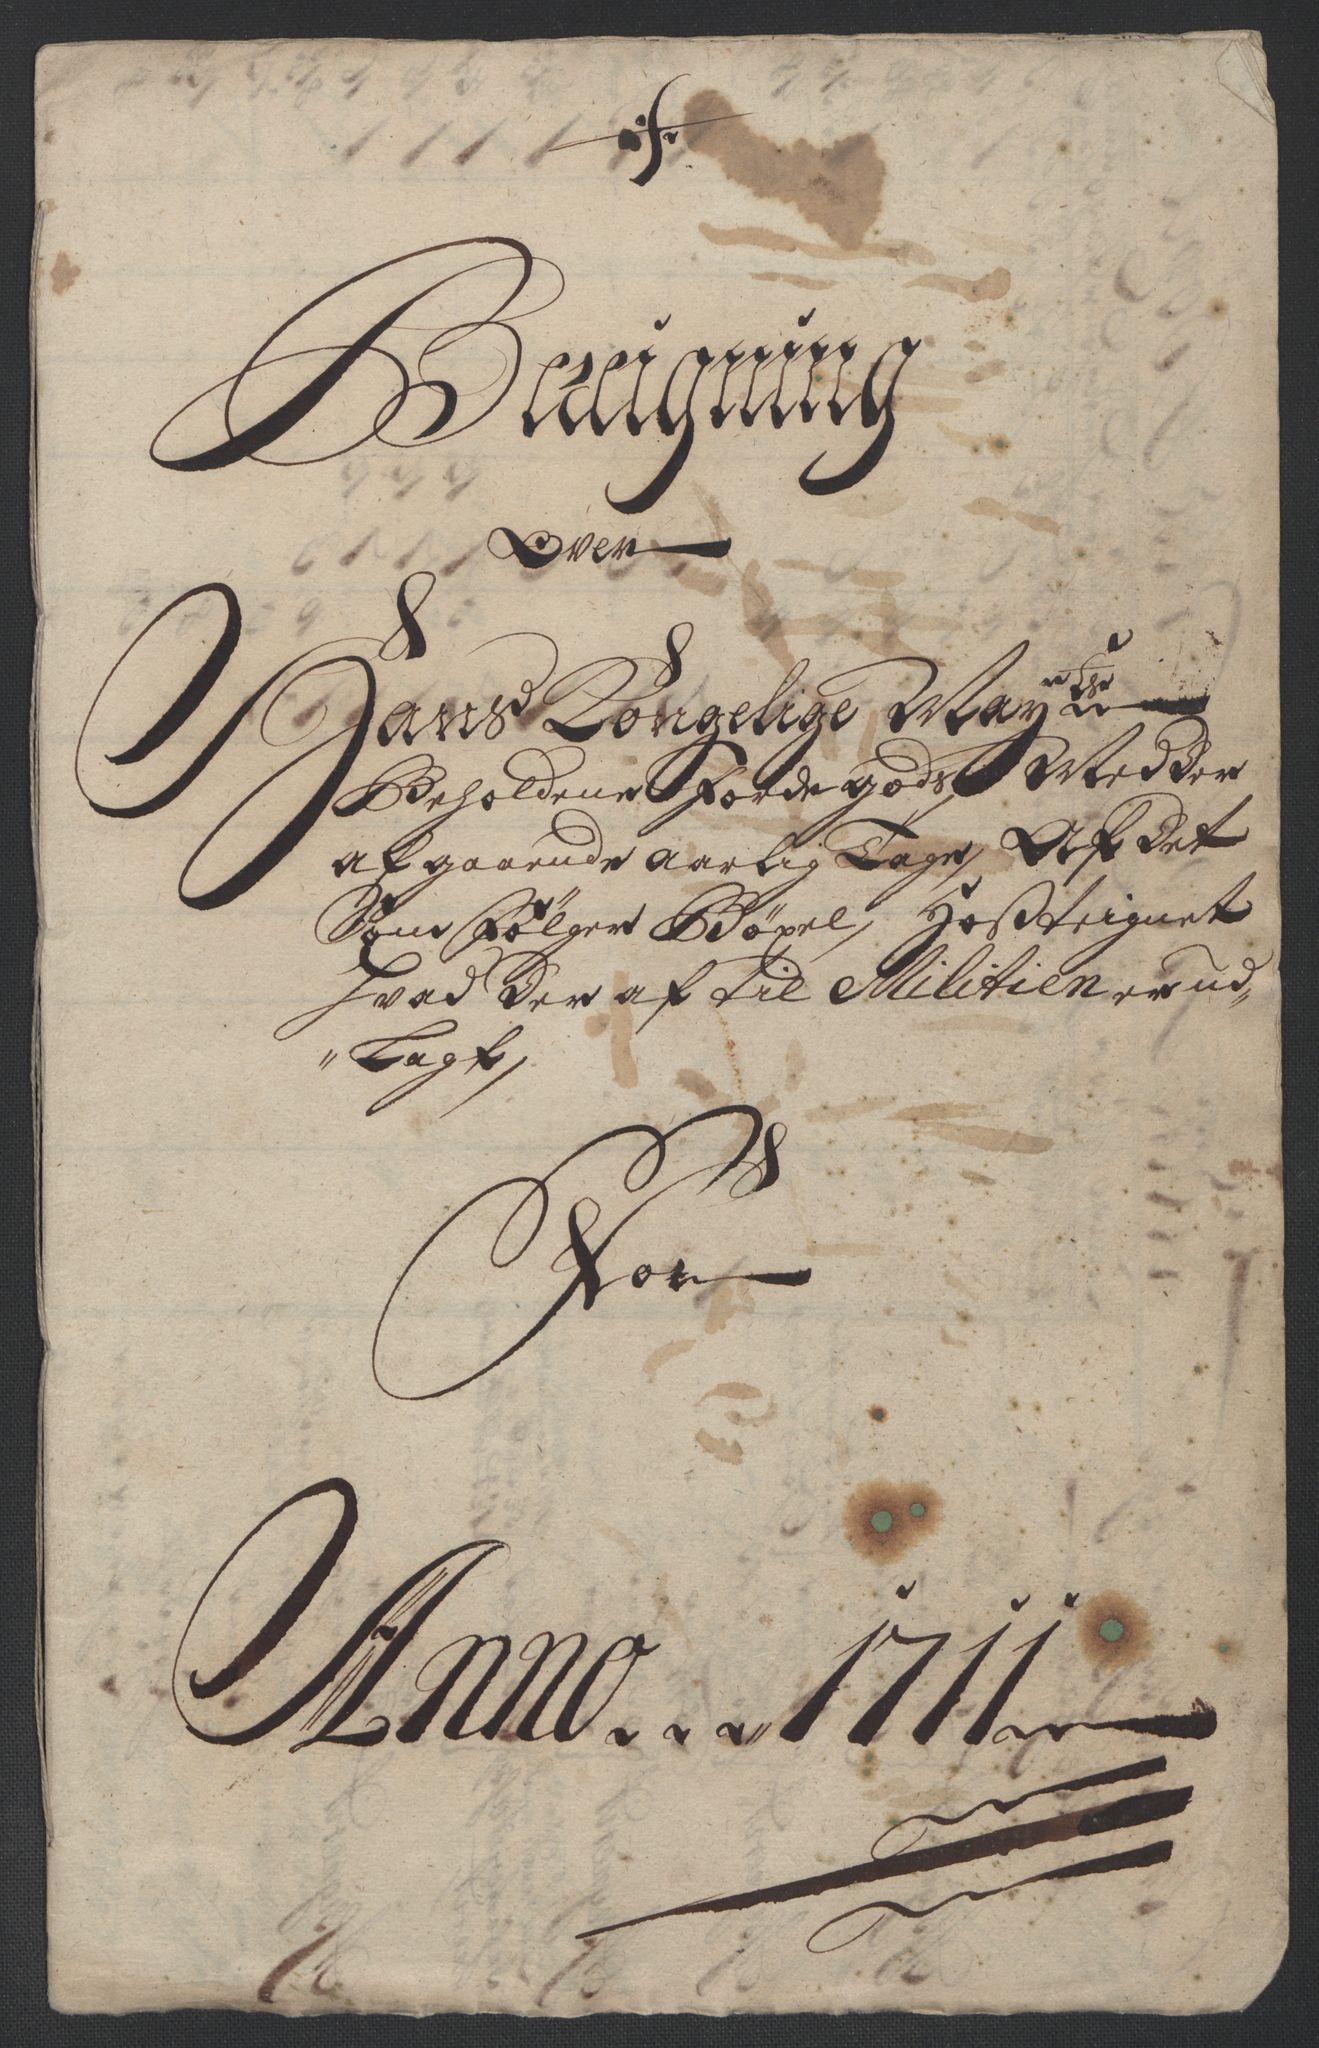 Beregning
Over
Hans Kongelige May:ts
Beholdene Jordegods, Med Der
af gaaende aarlig Tage, Af Det
Som Følger Bøxel, Hoßteignet
hvad Der af til Militien er ud„
„Lagt,
For
Anno... 1711